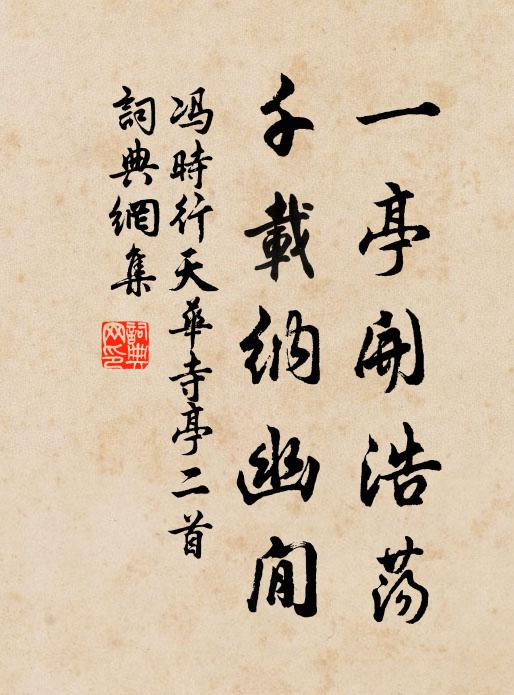 一亭開浩蕩
千載納幽閒
冯時行天華寺亭二首
詞典網集
詞典網印